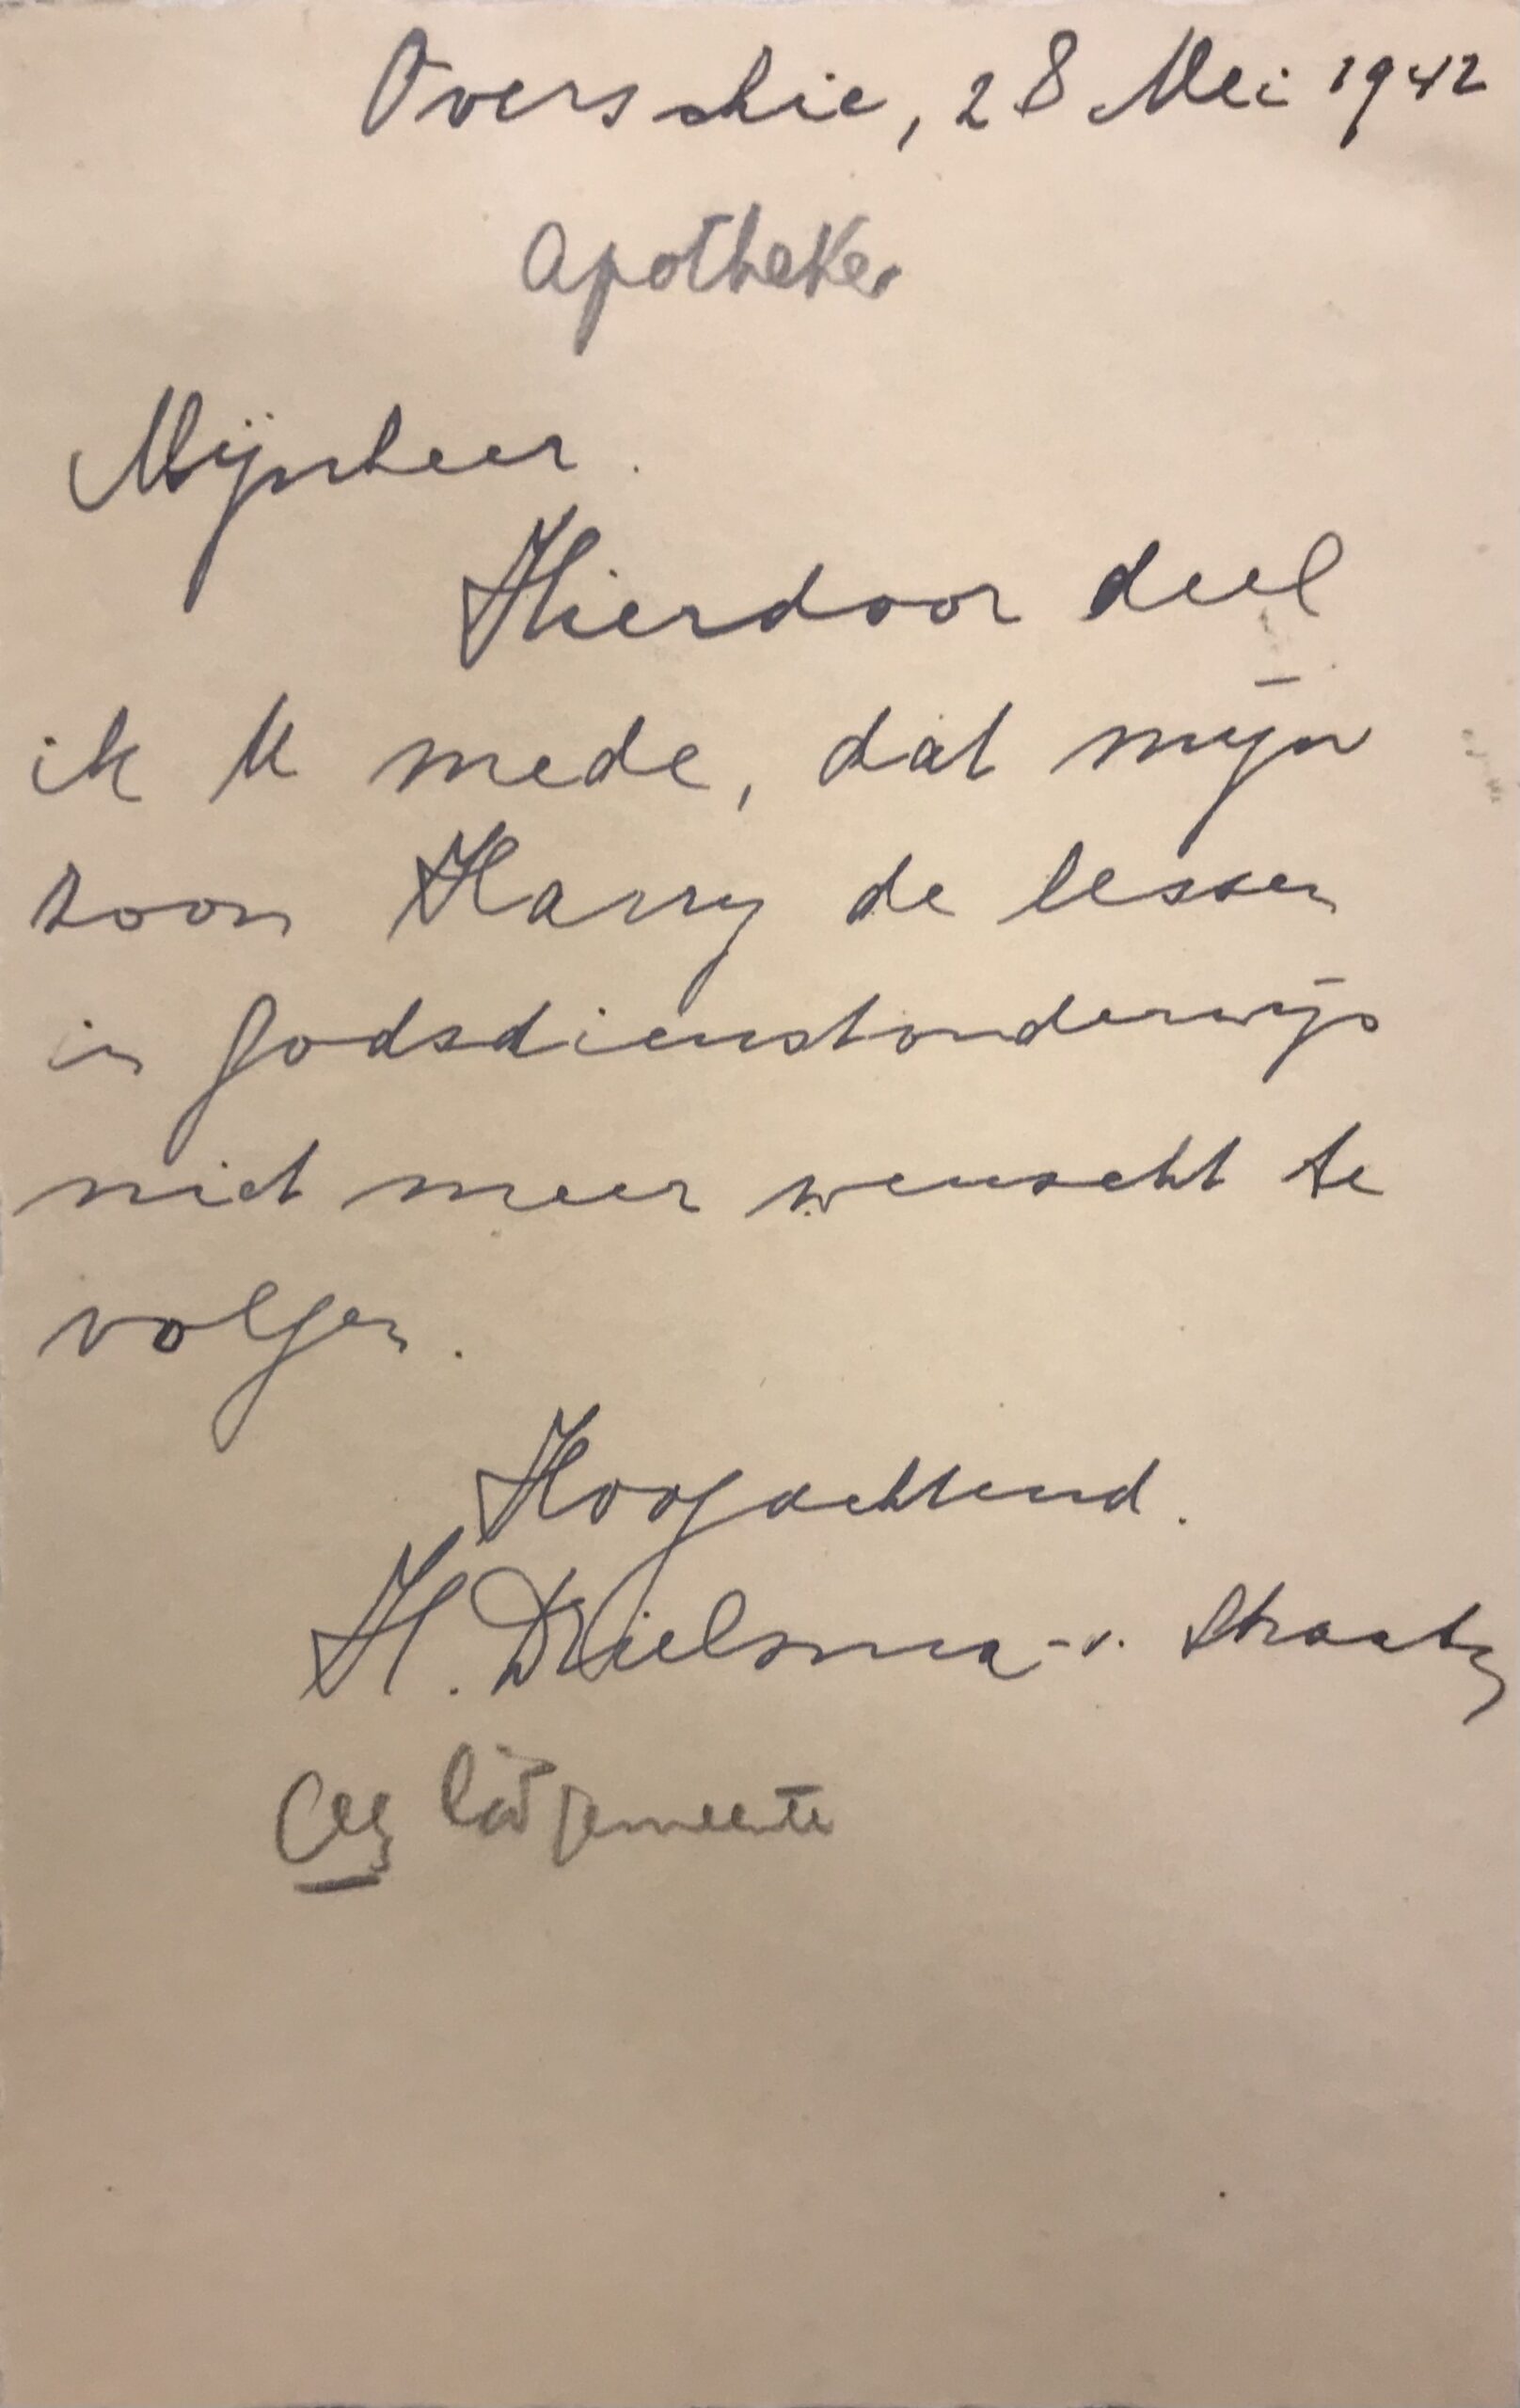 Overschie, 28 Mei 1942
Apotheker
Mijnheer.
Hierdoor deel
ik U mede, dat mijn
zoon Harry de lessen
in godsdienstonderwijs
niet meer wenscht te
volgen.
Hoogachtend.
H. Dielsma-v. Straaten
gemeente